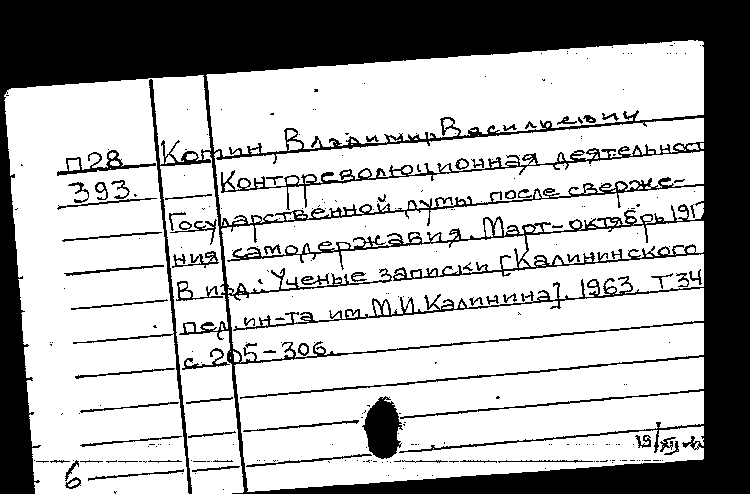 П28 Котин, Владимир Васильевич
393. Контрреволюционная деятельност
Государственной думы после сверже-
ния самодержавия. Март-октябрь 1917
В изд.: Ученые записки [Калининского
пед. ин-та им. М.И. Калинина]. 1963. Т 34
с. 205-306.
19/XII
6